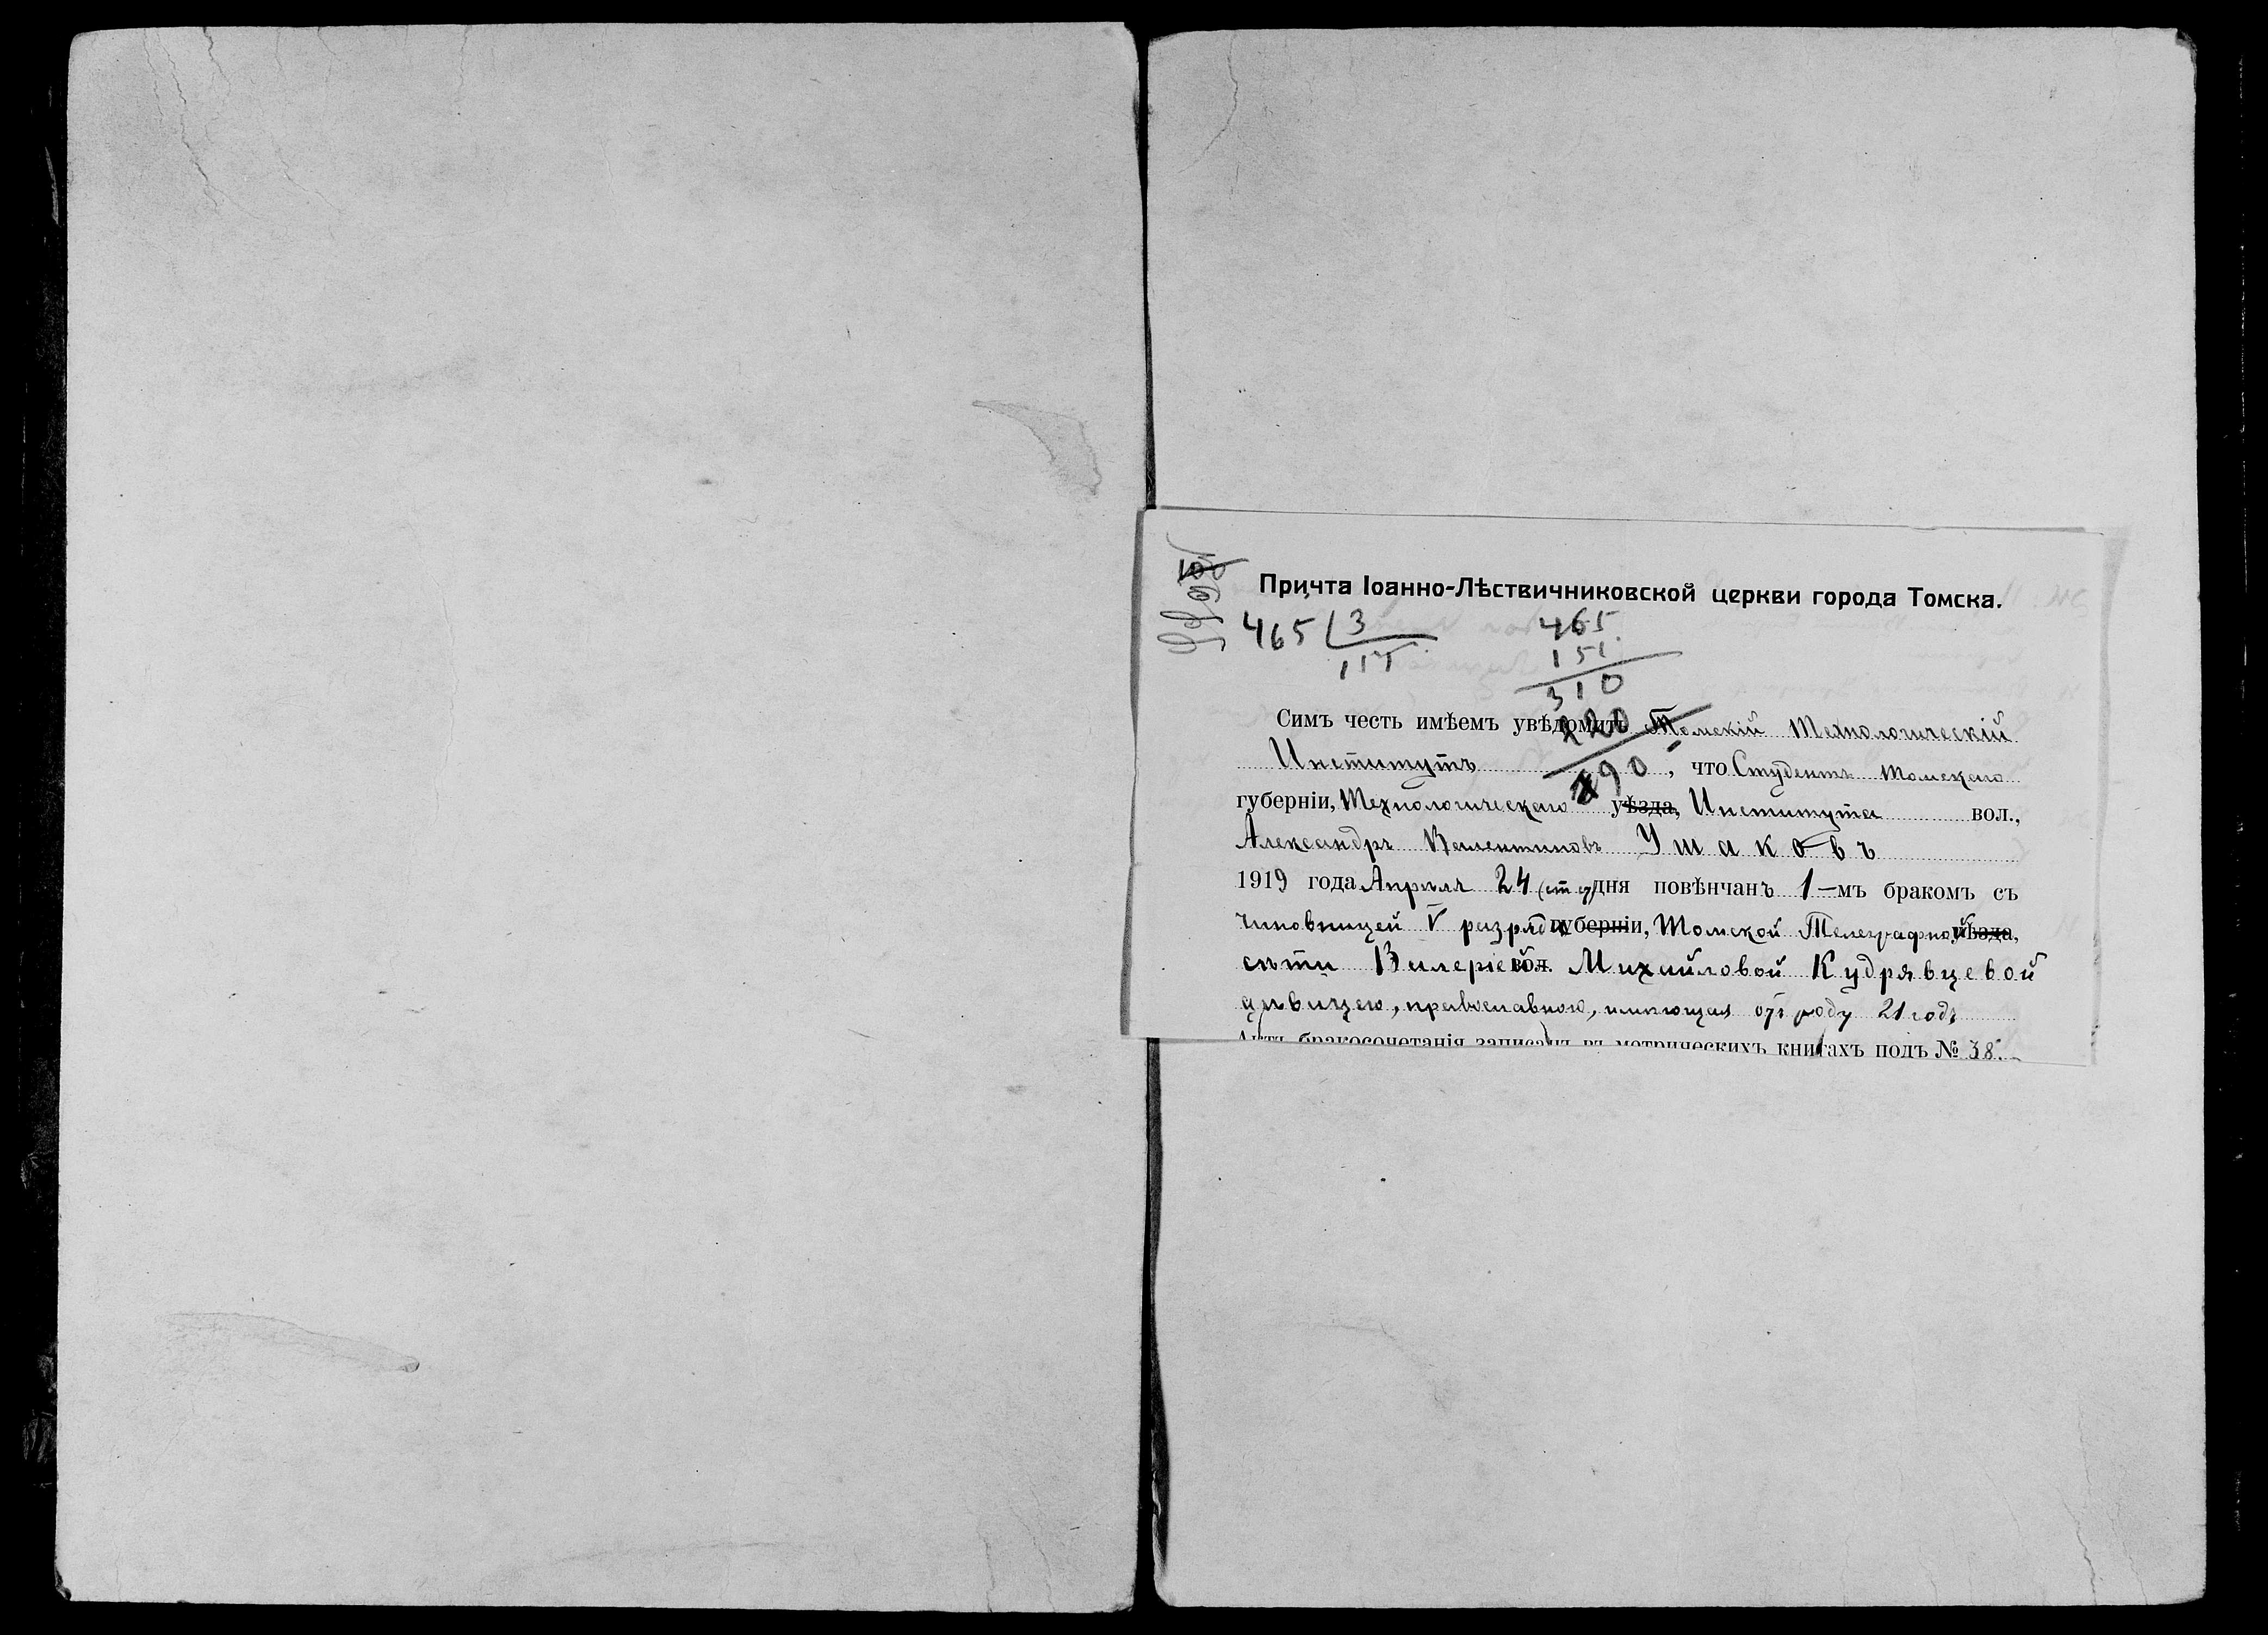 Причта Іоанно-Лѣствичниковской церкви города Томска.
465 3
465
155
151
310
220
90
Симъ честь имѣемъ увѣдомить Томскій Технологическій
Институтъ, что Студентъ Томскаго
губерніи, Технологическаго уѣзда, Института вол.,
Александръ Валентиновъ Ушаковъ
1919 года Апрѣля 24 (ст. ст) дня повѣнчанъ 1-мъ бракомъ съ
чиновницей V разряда губерніи, Томской Телеграфной уѣзда,
сѣти Валеріей вол. Михайловой Кудрявцевой
дѣвицею, православною, имѣющая отъ роду 21 годъ
Актъ бракосочетанія записанъ въ метрическихъ книгахъ подъ № 38.